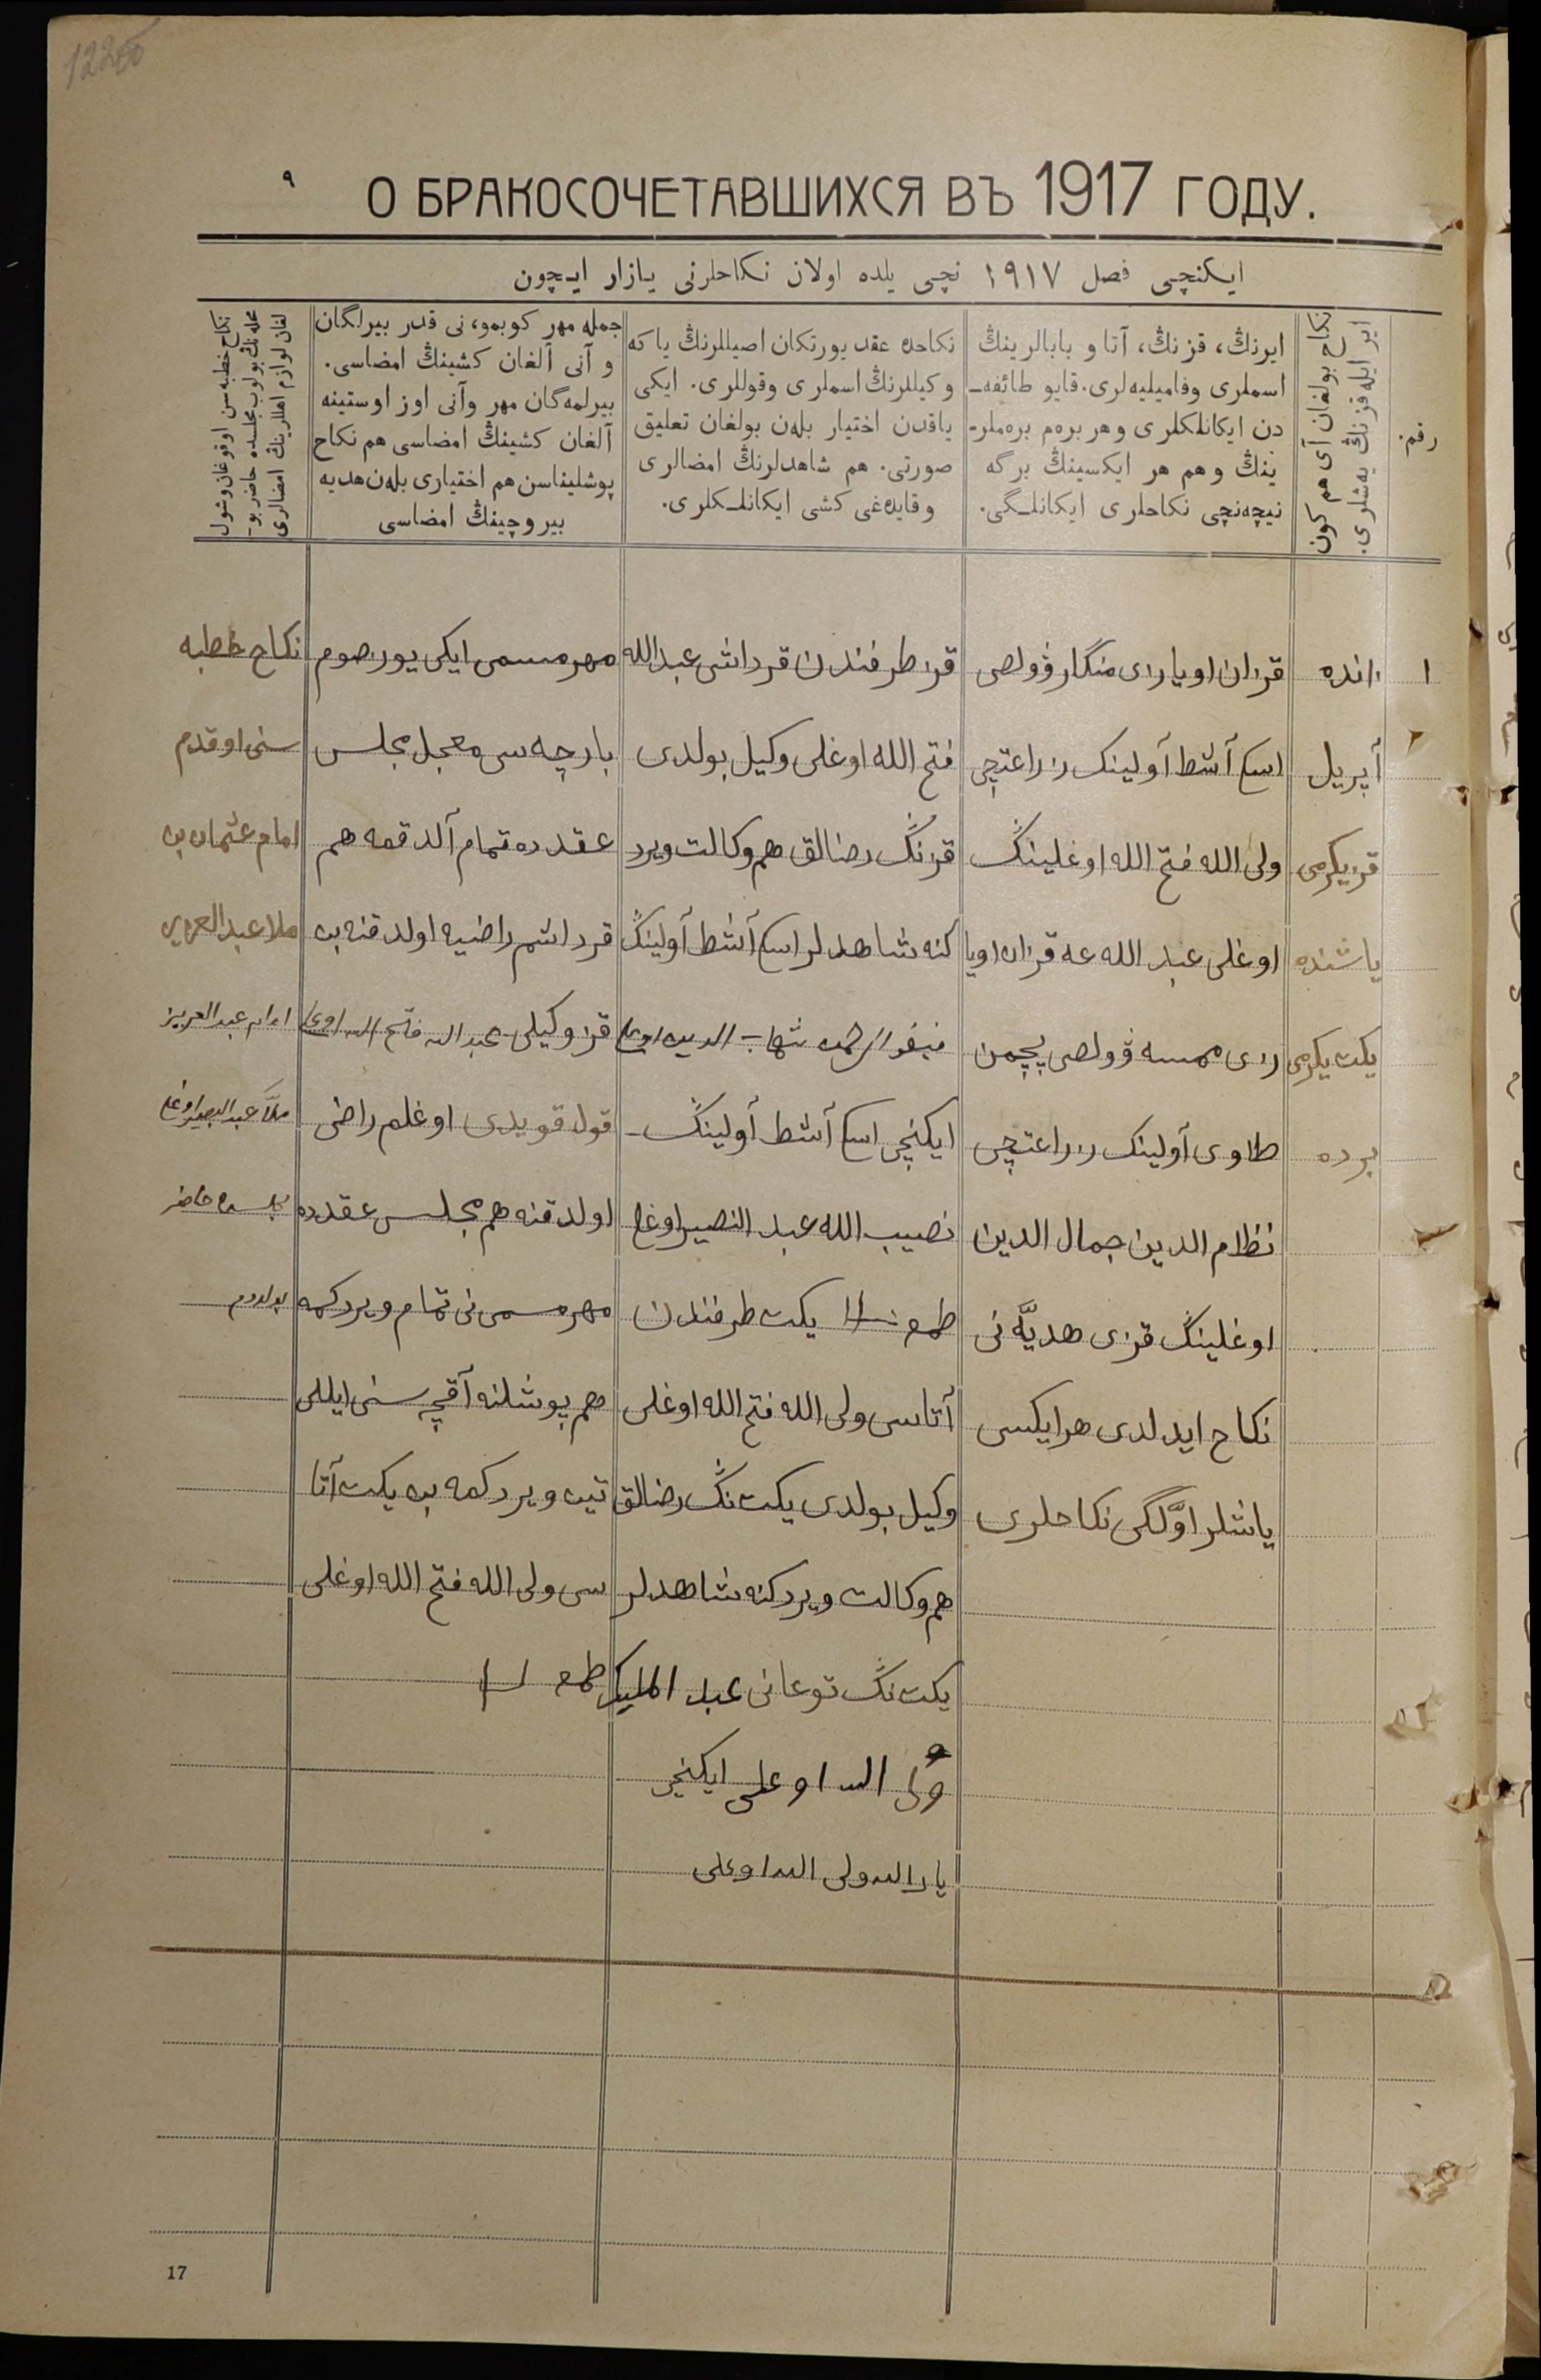 1226
٩
О БРАКОСОЧЕТАВШИХСЯ ВЪ 1917 ГОДУ.
ایکنچی فصل ١٩١٧ نچی یلده اولان نکاحلرنی یازار ایچون
رقم.
نکاح بولغان آی هم کون
ایر ایله قزنڭ یه‌شلری.
ایرنڭ، قزنڭ، آتا و بابالرینڭ
اسملری وفامیلیه‌لری. قایو طائفه‌ـ
دن ایکانلکلری و هر بره‌م بره‌ملرـ
ینڭ و هم هر ایکسینڭ برگه
نیچه‌نچی نکاحلری ایکانلـگی.
نکاحده عقد یورتکان اصیللرنڭ یا که
وکیللرنڭ اسملری وقوللری. ایکی
یاقدن اختیار بله‌ن بولغان تعلیق
صورتی. هم شاهدلرنڭ امضالری
وقایده‌غی کشی ایکانلـکلری.
جمله مهر کوبمو، نی قدر بیرلگان
و آنی آلغان کشینڭ امضاسی.
بیرلمه‌گان مهر وآنی اوز اوستینه
آلغان کشینڭ امضاسی هم نکاح
پوشلیناسن هم اختیاری بله‌ن هدیه
بیروچینڭ امضاسی
نکاح خطبه سن اوقوغان وشول
محله‌نڭ بولوب مجلسده حاضر بوـ
لغان لوازم اهللرینڭ امضالری
١
١ نده
أپریل
قز یکرمی
یاشنده
یکت یکرمی
برده
قزان اویازی منگار ڤولصی
اسکی آشط آولینک زراعتچی
ولی الله فتح الله اوغلینڭ
اوغلی عبد الله غه قزان اویا
زی ممسه ڤولصی پچمن
طاوی آولینک زراعتچی
نظام الدین جمال الدین
اوغلینڭ قزی هدیَّه نی
نکاح ایدلدی هر ایکسی
یاشلر اوَّلگی نکاحلری
قز طرفندن قرداشی عبد الله
فتح الله اوغلی وکیل بولدی
قزنڭ رضالق هم وکالت ویرد
کنه شاهدلر اسکی آشط أولینڭ
شهاب الدین اوغلی
ایکنچی اسکی أشط أولینڭ
نصیب الله عبد النصیر اوغلی
یکت طرفندن
أتاسی ولی الله فتح الله اوغلی
وکیل بولدی یکت نڭ رضالق
هم وکالت ویردکنه شاهدلر
یکت نڭ توغانی عبد الملیک
ولی الله اوغلی ایکنچی
یار الله ولی الله اوغلی
مهر مسمی ایکی یوز صوم
بارچه سی معجل مجلس
عقدده تمام آلدقمه هم
قرداشم راضیه اولدقنه بن
قز وکیلی عبد الله فتح الله اوغلی
قول قویدی اوغلم راضی
اولدقنه هم مجلس عقدده
مهر مسمی نی تمام ویردکمه
هم پوشلنه آقچه سنی ایللی
تین ویردکمه بن یکت آتا
سی ولی الله فتح الله اوغلی
نکاح خطبه
سنی اوقدم
امام عثمان بن
ملا عبد العزیز
امام عبد العزیز
ملَّا عبد البصیر اوغلی
مجلسده حاضر
بولدم
17